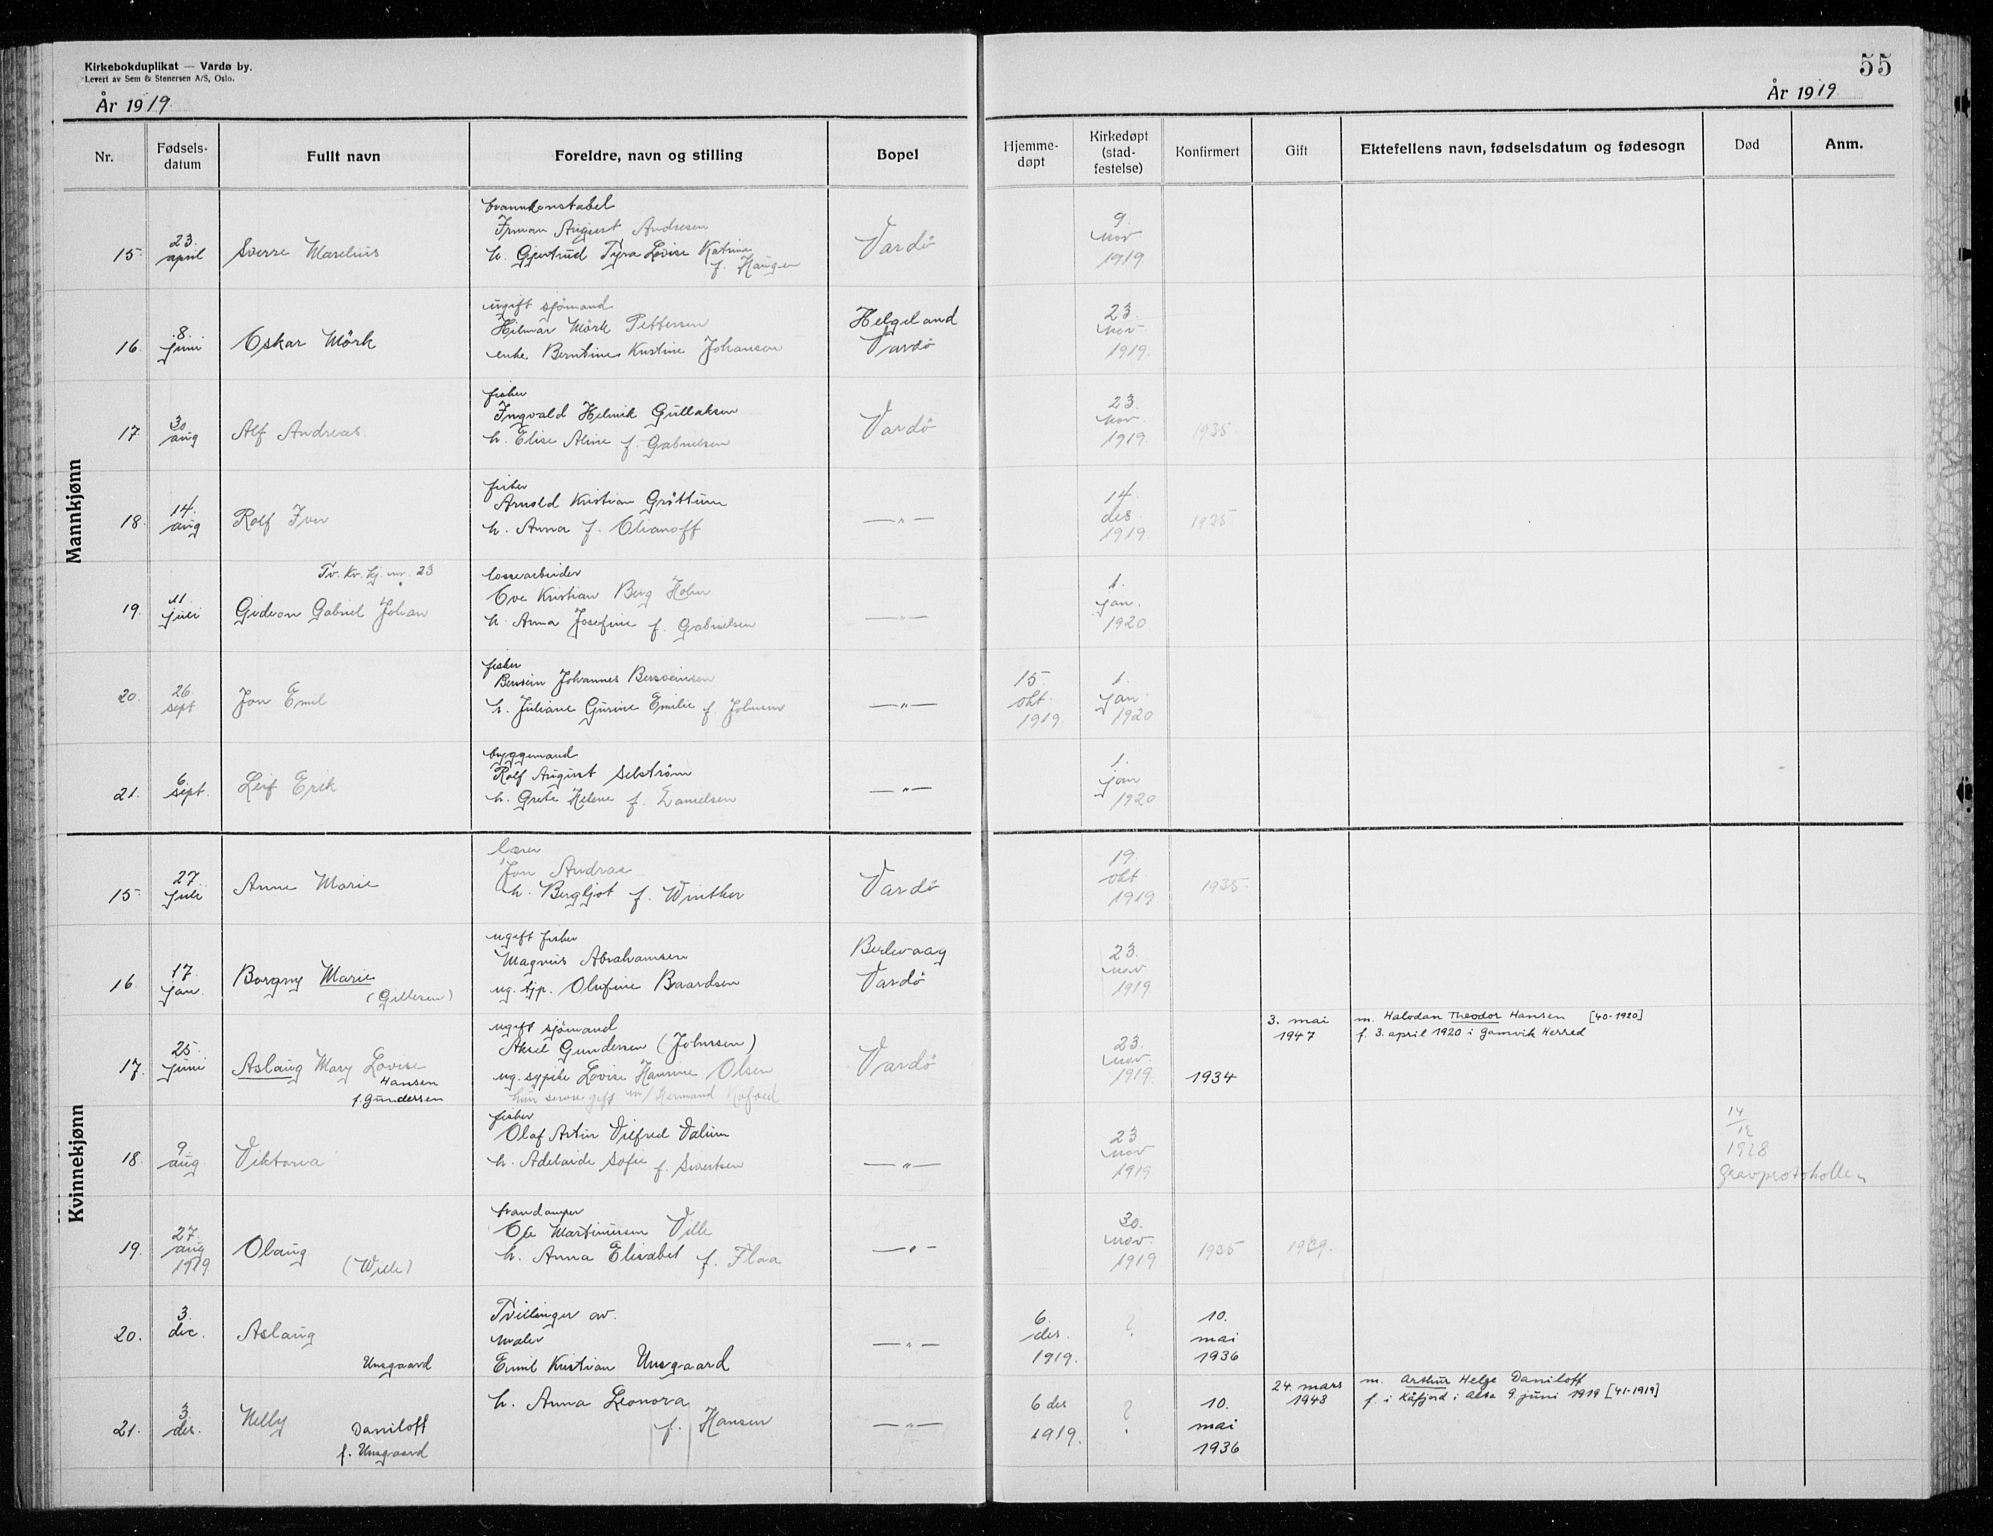 Kirkebokduplikat — Vardø by.
Levert av Sem & Stenersen A/S, Oslo.
År 1919.
55
År 1919
Nr.
Fødselsdatum
Fullt navn
Foreldre, navn og stilling
Bopel
Hjemmedøpt
Kirkedøpt (stadfestelse)
Konfirmert
Gift
Ektefellens navn, fødselsdatum og fødesogn
Død
Anm.
Mannkjønn
brannkonstabel
August Andresen
15. 23. april Sverre Marelius h. Gjertrud Tyra Lovise Katrine Vardø 9. nov 1919
f. Haugen
ugift sjömand
Hilmar Mörk Pettersen Helgeland
16. 8. juni Oskar Mörk enke Berntine Kristine Johansen Vardø 23. nov 1919.
fisker
Ingvald Henrik Gullaksen
17. 30 aug Alf Andreas h. Elise Aline f. Gabrielsen Vardø 23. nov. 1919. 1935.
fisker
Arnold Kristian Gröttum
18. 14. aug Rolf Iver h. Anna f. Olianoff —"— 14. des. 1919. 1935
Tv. Kv. kj. nr. 23
lossearbeider
Ove Kristian Berg
19. 11. juli Gideon Gabriel Johan h. Anna Josefine f. Gabrielsen —"— 1. jan. 1920
fisker
Johannes
20. 26. sept. Jon Emil h. Juliane Gurine Emilie f. Johnsen —"— 15. okt. 1919. 1. jan. 1920
byggemand
Rolf August Selström
21. 6. sept. Leif Erik h. Grete Helene f. Danielsen —"— 1. jan 1920
Kvinnekjønn
lærer
Jon Andraa
15. 27 juli Anne Marie h. Bergljot f. Winther Vardø 19. okt. 1919. 1935.
ugift fisker
Magnus Abrahamsen Berlevaag
16. 17. jan. Borgny Marie ug. tjp. Olufine Baardsen Vardø 23. nov 1919
ugift sjömand
Aksel Gundersen (Johnsen)
17. 25 juni Aslaug Mary Lovise ug. sypike Lovise Hansine Olsen Vardø 23. nov. 1919. 1934
Hansen
f. Gundersen
hun senere gift m/ Hermand Kofoed
3. mai 1947 m. Halvdan Theodor Hansen [40-1920]
f. 3. april 1920 i Gamvik Herred
fisker
Olaf Artur Vilfred Valum
18. 9 aug Viktoria h. Adelaide Sofie f. Sivertsen —"— 23 nov 1919 14/12 1928
Gravprotokollen
Ole Martinussen Ville
19. 27. aug 1919. Olaug h. Anna Elisabet f. Flaa —"— 30. nov. 1919 1935
(Wille)
Tvillinger av.
maler
20. 3. dec. Aslaug Emil Kristian Unsgaard —"— 6. des. 1919. ? 10. mai 1936
Unsgaard
h. Anna Leonora
f. Hansen
21. 3. des. Nelly —"— 6 des 1919. ? 10. mai 1936
Daniloff
f. Unsgaard
24. mars 1948 m. Arthur Helge Daniloff
f. i Kåfjord i Alta 9. juni 1919 [41-1919]